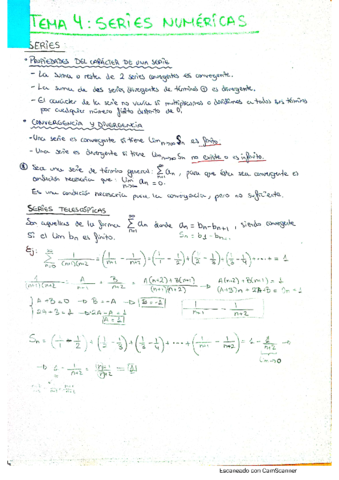 TEMA 4: SERIES NUMÉRICAS
SERIES
* PROPIEDADES DEL CARÁCTER DE UNA SERIE
- La suma o resta de 2 series convergentes es convergente.
- La suma de dos series divergentes de término ⊕ es divergente.
- El carácter de la serie no varía si multiplicamos o dividimos a todos sus términos
por cualquier número finito distinto de 0.
* CONVERGENCIA Y DIVERGENCIA
- Una serie es convergente si tiene Lim n→∞ Sn es finito.
- Una serie es divergente si tiene Lim n→∞ Sn no existe o es infinito.
Sea una serie de término general: Σ an, para que ésta sea convergente es
condición necesaria que: Lim n→∞ an = 0.
Es una condición necesaria para la convergencia, pero no suficiente.
SERIES TELESCÓPICAS
Son aquellas de la forma Σ an donde an = bn - bn+1, siendo convergente
Si el Lim bn es finito. Sn = b1 - bn+1
Ej:
Σ n=0 ∞ 1/(n+1)(n+2) = (1/n+1 - 1/n+2) = (1/1 - 1/2) + (1/2 - 1/3) + (1/3 - 1/4) + ... +
1/(n+1)(n+2) = A/n+1 + B/n+2 = A(n+2)+B(n+1)/(n+1)(n+2) → A(n+2)+B(n+1)=1
A+B=0 → B=-A → B=-1
2A+B=1 → 2A-A=1
A=1
1/n+1 - 1/n+2
Sn = (1/1 - 1/2) + (1/2 - 1/3) + (1/3 - 1/4) + ... + (1/n+1 - 1/n+2) = 1 - 1/n+2 →
Lim=0
→ 1 - 1/n+2 = n+1/n+2 =
Escaneado con CamScanner